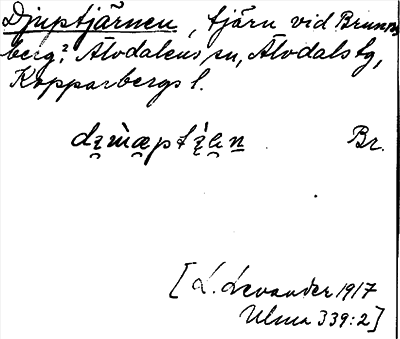 Djuptjärnen, tjärn vid Brunns
berg? Älvdalens sn, Älvdals tg,
Kopparbergs l.
Br.
[L. Levander 1917
Ulma 339:2]